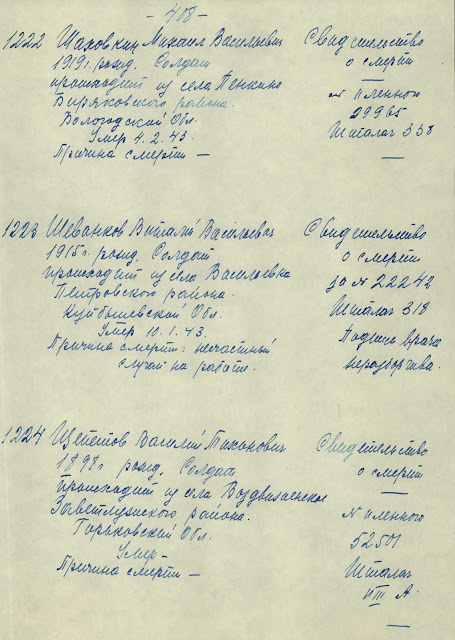 - 408 -
1222 Шаховкин Михаил Васильевич
1919 г. рожд. Солдат
происходит из села Пенкино
Биряковского района.
Вологодский Обл.
Умер 4. 2. 43.
Причина смерти —
Свидетельство
о смерти
№ пленного
29965
Шталаг 338
—
1223 Шеванков Виталий Васильевич
1915 г. рожд. Солдат
происходит из села Васильевка
Петровского района.
Куйбышевской Обл.
Умер 10. 1. 43.
Причина смерти: несчастный
случай на работе.
Свидетельство
о смерти
за № 22242
Шталаг 318
Подпись врача
неразборчива.
1224 Щепетов Василий Тихонович
1898 г. рожд. Солдат
происходит из села Воздвиженское
Заветлужского района.
Горьковский Обл.
Умер —
Причина смерти —
Свидетельство
о смерти
—
№ пленного
52501
Шталаг
III А.
—